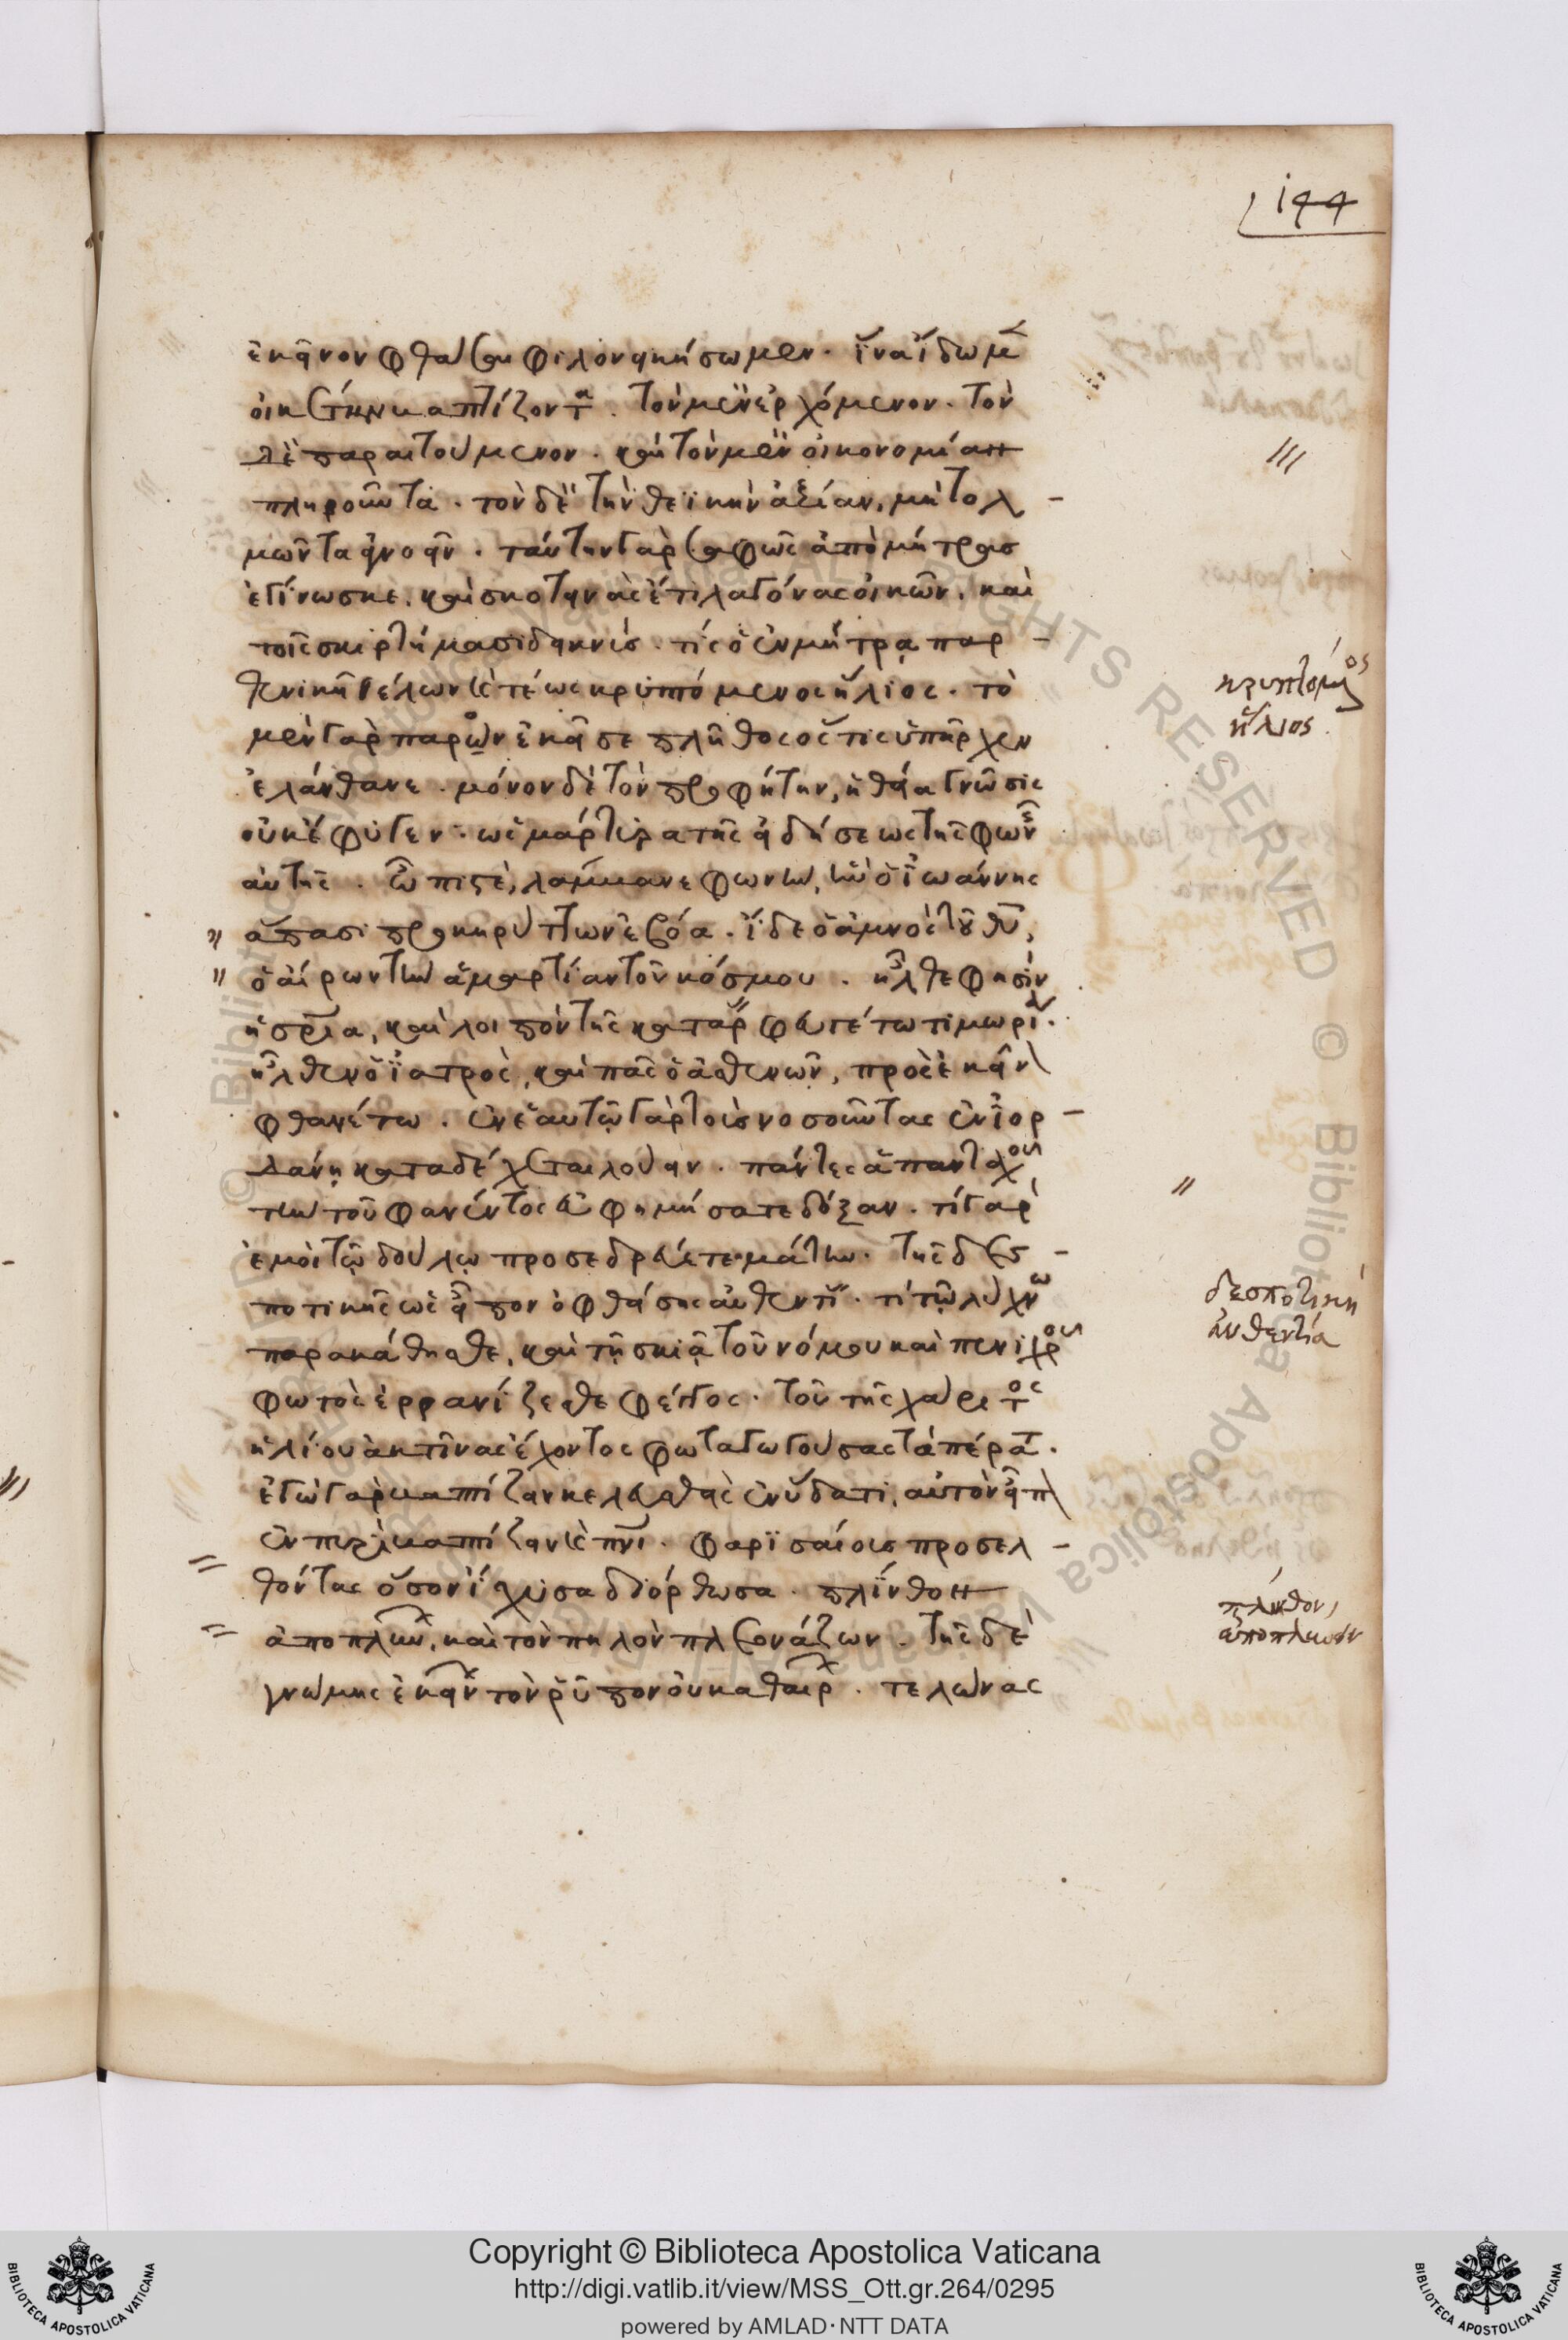 144
ἐκεῖνον φθάσαι φιλονεικήσωμεν. ἵνα ἴδωμεν
ἐκεῖ τὸν βαπτίζοντα. τὸν μὲν ἐρχόμενον. τὸν
δὲ παραιτούμενον. καὶ τὸν μὲν οἰκονομίαν
πληροῦντα. τὸν δὲ τὴν θεϊκὴν ἀξίαν, μὴ τολ-
μῶντα ἀγνοεῖν. ταύτην γὰρ σαφῶς ἀπὸ μήτρας
ἐγίνωσκε. καὶ σκοτεινὰς ἔτι λαγόνας οἰκῶν. καὶ
τοῖς σκιρτήμασι δεικνύς. τίς ὁ ἐν μήτρᾳ παρ-
θενικῇ τέως κρυπτόμενος ἥλιος. τὸ
μὲν γὰρ παρὸν ἐκεῖσε πλῆθος ὅστις ὑπῆρχεν
ἐλάνθανε. μόνον δὲ τὸν προφήτην, ἡ θεία γνῶσις
οὐκ ἔφυγεν. ὡς μάρτυρα τῆς εἰδήσεως τῆς φωνῆς
αὐτῆς. ὦ πιστὲ, λάμβανε φωνὴν, ἣν ὁ ἰωάννης
ἅπασι προκηρύττων ἐβόα. ἴδε ὁ ἀμνὸς τοῦ θυ,
ὁ αἴρων τὴν ἁμαρτίαν τοῦ κόσμου. ἦλθε φησὶν
ἡ σρια, καὶ λοιπὸν τῆς κατάρας φευγέτω τιμωρία.
ἦλθεν ὁ ἰατρὸς, καὶ πᾶς ὁ ἀσθενῶν, πρὸς ἐκεῖνον
φθανέτω. ἐν ἑαυτῷ γὰρ τοὺς νοσοῦντας ἐν ἰορ-
δάνῃ καταδέχεται λούειν. πάντες ἁπανταχοῦ
τὴν τοῦ φανέντος εὐφημήσατε δόξαν. τί γὰρ
ἐμοὶ τῷ δούλῳ προσεδρεύετε μάτην. τῆς δεσ-
ποτικῆς ὡς εἶπον ὀφθείσης αὐθεντίας. τί τῷ λύχνῳ
παρακάθησθε, καὶ τῇ σκιᾷ τοῦ νόμου καὶ πενιχροῦ
φωτὸς ἐρρανίζεσθε φέγγος. τοῦ τῆς χάριτος
ἡλίου ἀκτῖνας ἔχοντος φωταγωγούσας τὰ πέρατα.
ἐγὼ γὰρ βαπτίζειν κελευσθεὶς ἐν ὕδατι, αὐτὸν εἶπον
ἐν πυρὶ βαπτίζειν καὶ πνι. φαρισαίους προσελ-
θόντας ὅσον ἴσχυσα διόρθωσα. πλίνθον
ἀποπλύνων, καὶ τὸν πηλὸν πλεονάζων. τῆς δὲ
γνώμης ἐκείνων τὸν ῥύπον οὐ καθαίρων. τελώνας
κρυπτόμενος
ἥλιος
δεσποτικὴ
αὐθεντία
πλίνθον
ἀποπλύνων
Copyright © Biblioteca Apostolica Vaticana
http://digi.vatlib.it/view/MSS_Ott.gr.264/0295
powered by AMLAD·NTT DATA